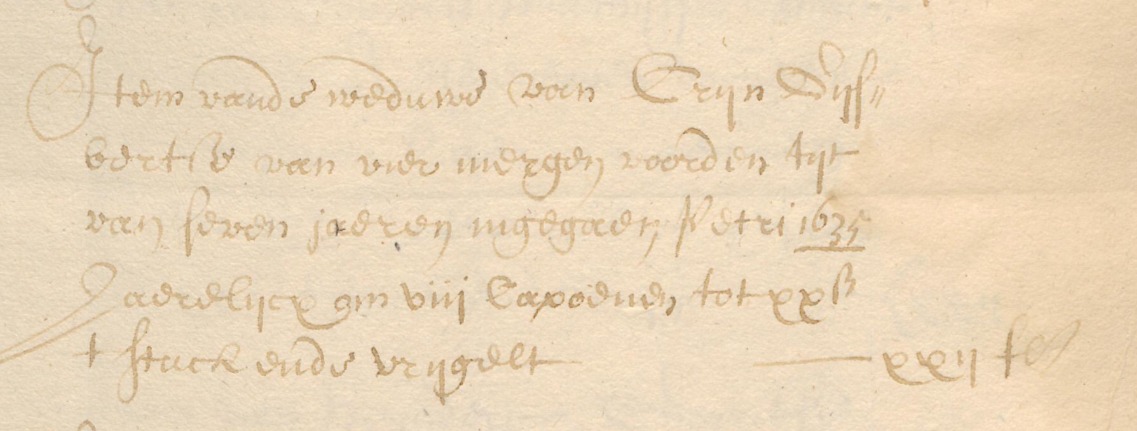 Item vande weduwe van Crijn Dijs„
bertse van vier mergen voorden tijt
van seven jaeren ingegaen Petri 1635
Jaerelijcx om viij Capoenen tot xx ß
t stuck ende vrijgelt — xxij